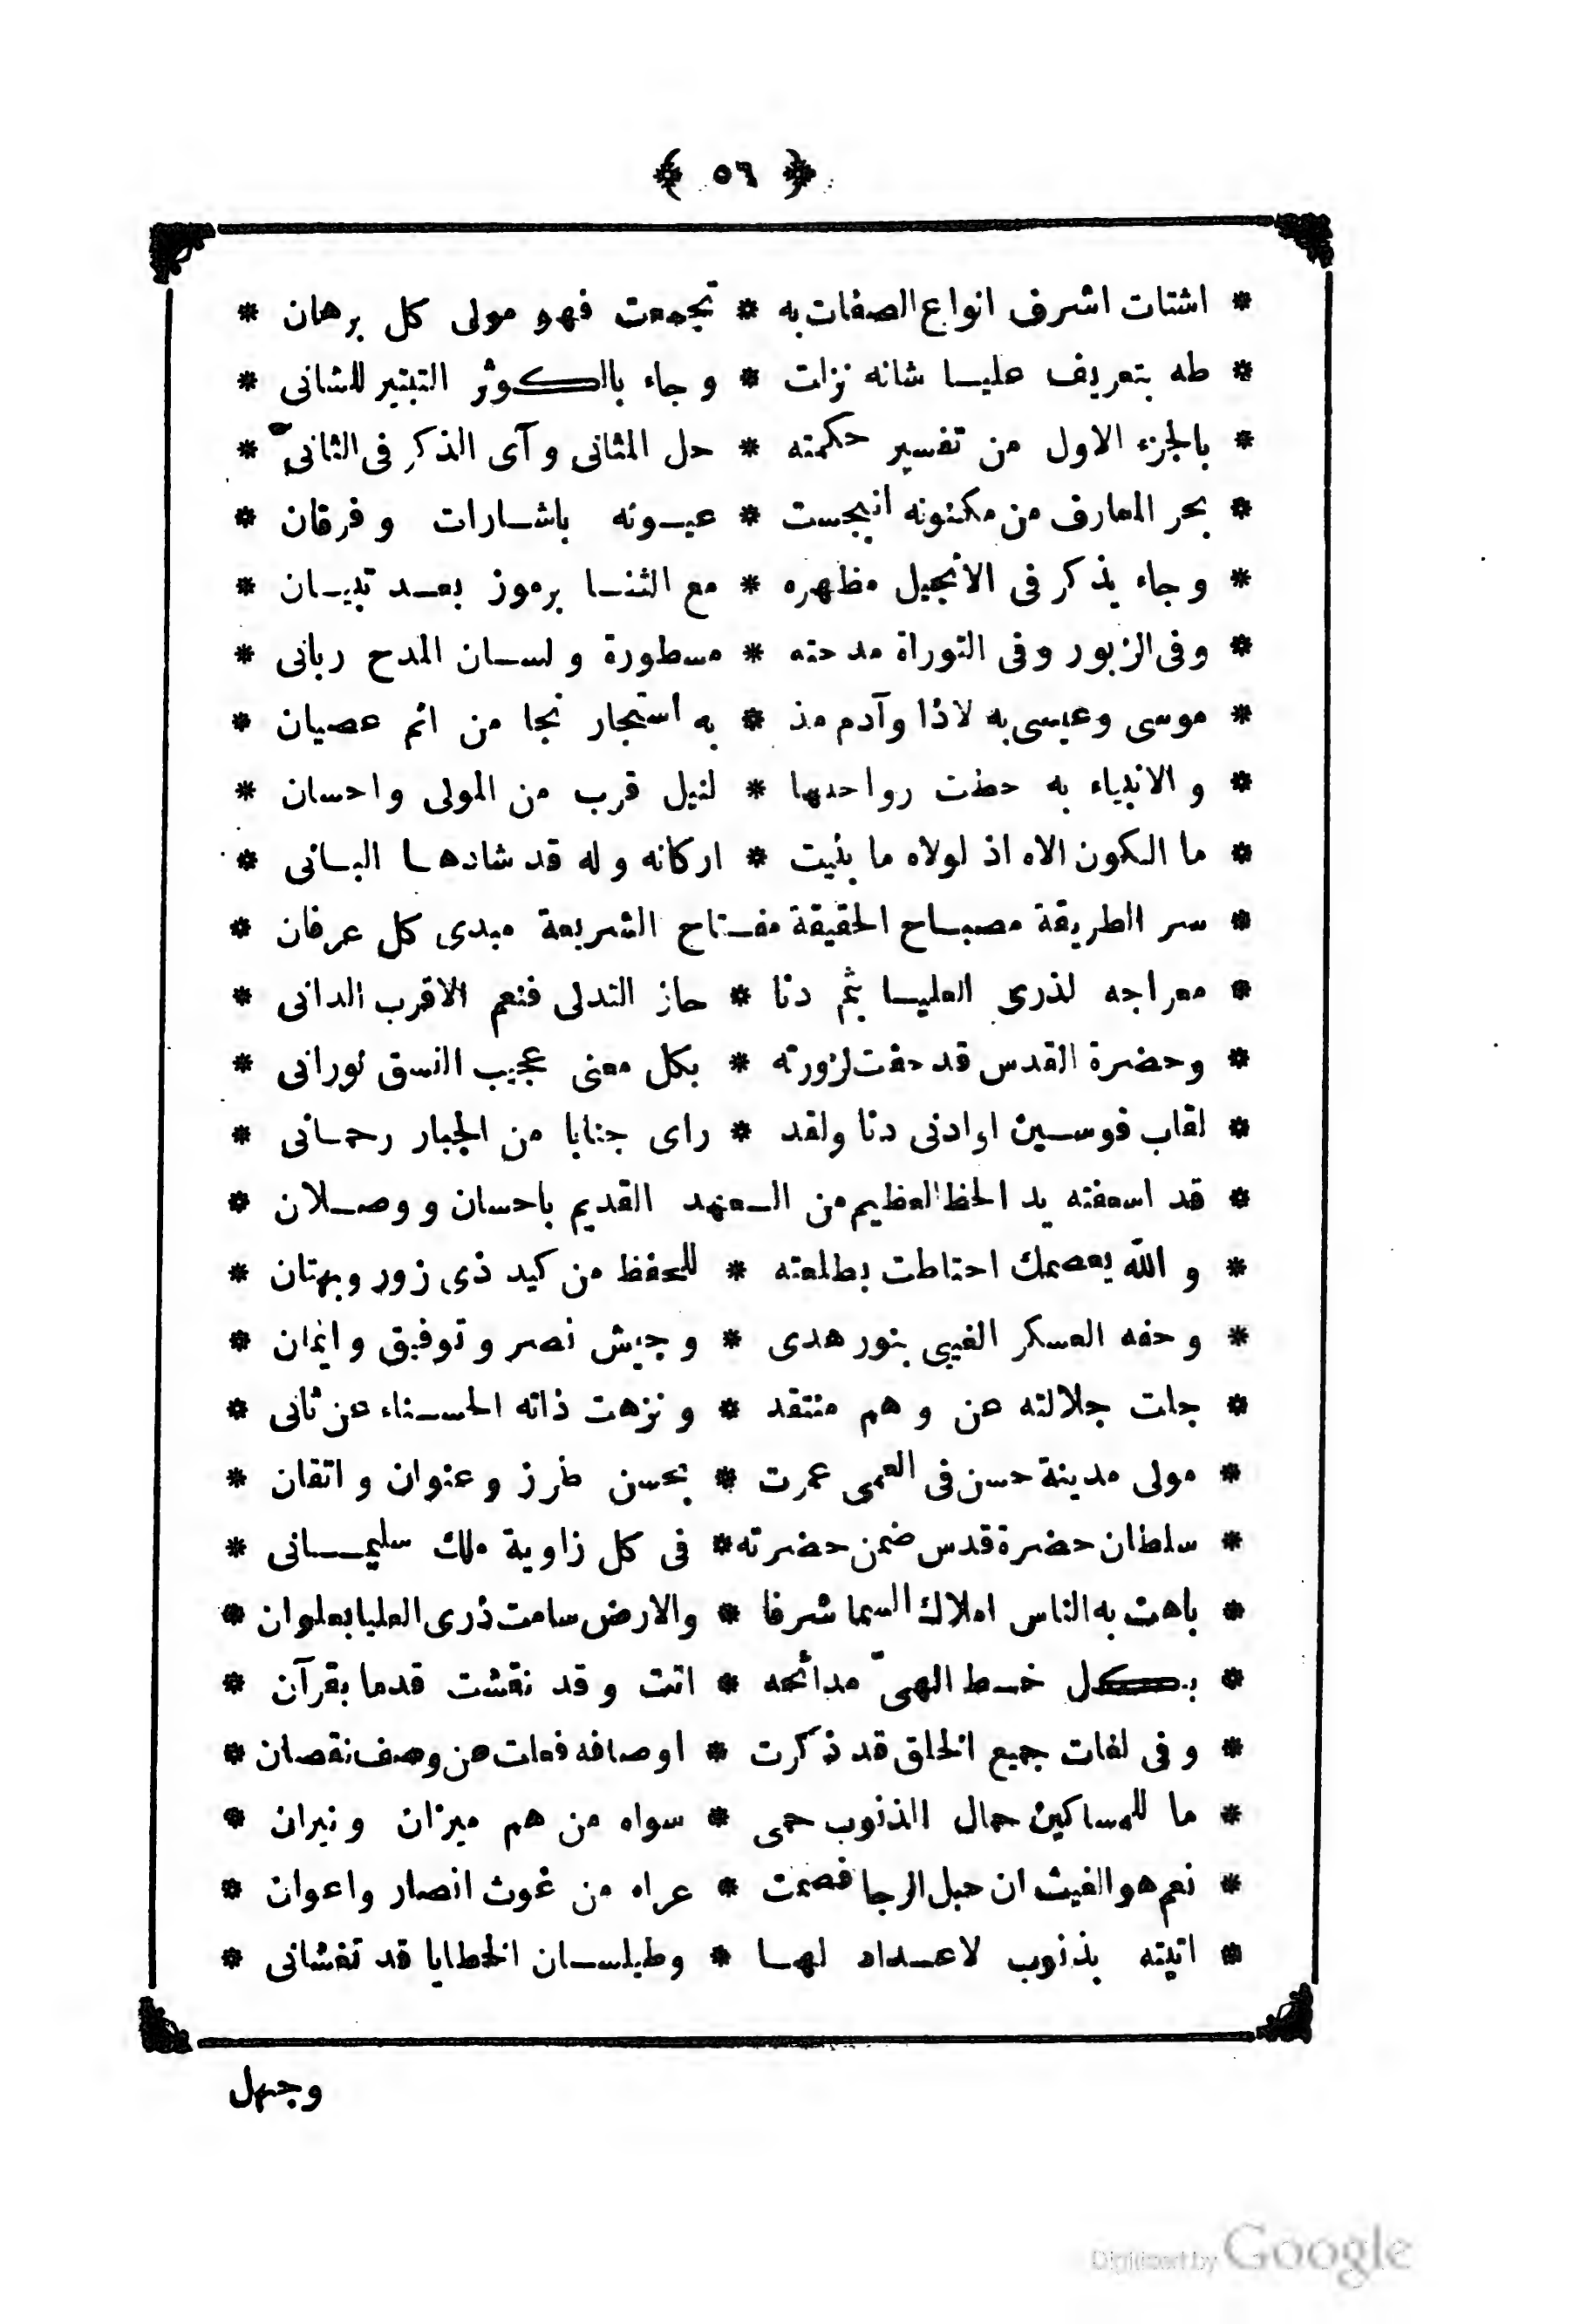 ﴿ ٥٦ ﴾
* اشتات اشرف انواع الصفات به * تجمعت فهو مولى كل برهان *
* طه بتعريف عليا شانه نزلت * و جاء بالكوثر التبتير للشانى *
* بالجزء الاول من تفسير حكمته * حل المثانى و آى الذكر فى الثانى *
* بحر المعارف من مكنونه انبجست * عيونه باشارات و فرقان *
* و جاء يذكر فى الانجيل مظهره * مع الثنا برموز بعد تبيان *
* وفى الزبور وفى التوراة مدحته * مسطورة و لسان المدح ربانى *
* موسى وعيسى به لاذا وآدم مذ * به استجار نجا من اثم عصيان *
* و الانبياء به حطت رواحلها * لنيل قرب من المولى واحسان *
* ما الكون الاه اذ لولاه ما بنيت * اركانه و له قد شادها البانى *
* سر الطريقة مصباح الحقيقة مفتاح الشريعة مبدى كل عرفان *
* معراجه لذرى العليا بثم دنا * حاز التدلى فنعم الاقرب الدانى *
* وحضرة القدس قد حفت لزورته * بكل معنى عجيب النسق نورانى *
* لقاب قوسين اوادنى دنا ولقد * راى جنابا من الجبار رحمانى *
* قد اسعفته يد الحظ العظيم من العهد القديم باحسان و وصلان *
* و الله يعصمك احتاطت بطلعته * للحفظ من كيد ذى زور وبهتان *
* و حفه العسكر الغيبى بنور هدى * و جيش نصر و توفيق و ايمان *
* جلت جلالته عن وهم منتقد * و نزهت ذاته الحسناء عن ثانى *
* مولى مدينة حسن فى العمى عمرت * بحسن طرز و عنوان و اتقان *
* سلطان حضرة قدس ضمن حضرته * فى كل زاوية ملك سليمانى *
* باهت به الناس املاك السما شرفا * والارض سامت ذرى العليا بعلوان *
* بكل خط الهىّ مدائحه * اتت و قد نقشت قدما بقرآن *
* و فى لغات جميع الخلق قد ذكرت * اوصافه فعلت عن وصف نقصان *
* ما للمساكين حمال الذنوب حمى * سواه من هم ميزان و نيران *
* نعم هو الغيث ان حبل الرجا فصمت * عراه من غوث انصار واعوان *
* اتيته بذنوب لاعداد لها * وطيلسان الخطايا قد تغشانى *
وجهل
Digitized by Google